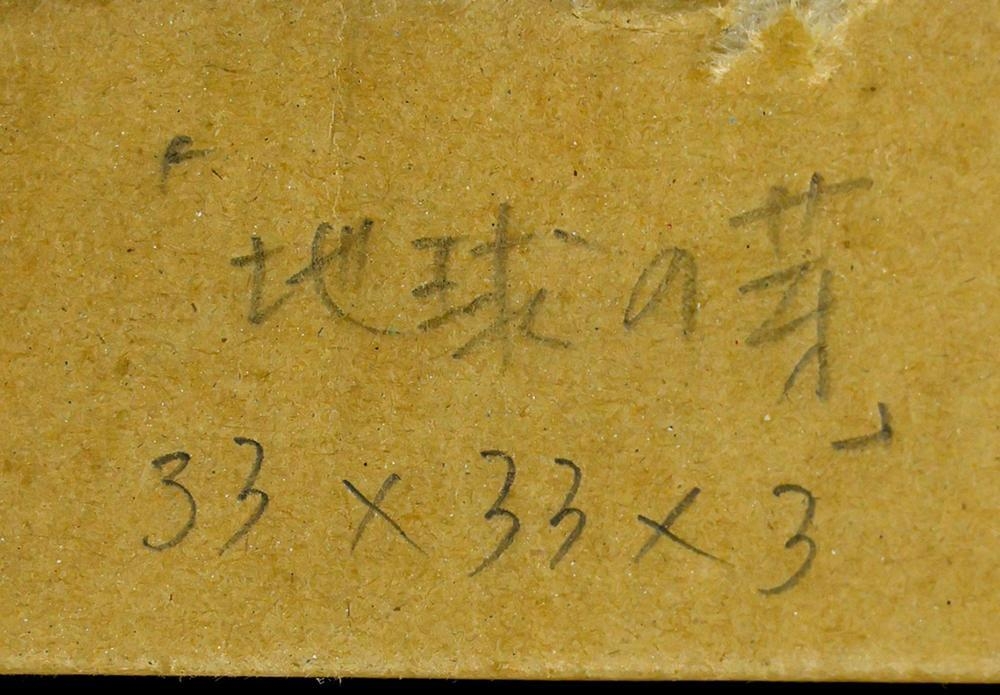 「地球の芽」
33×33×3